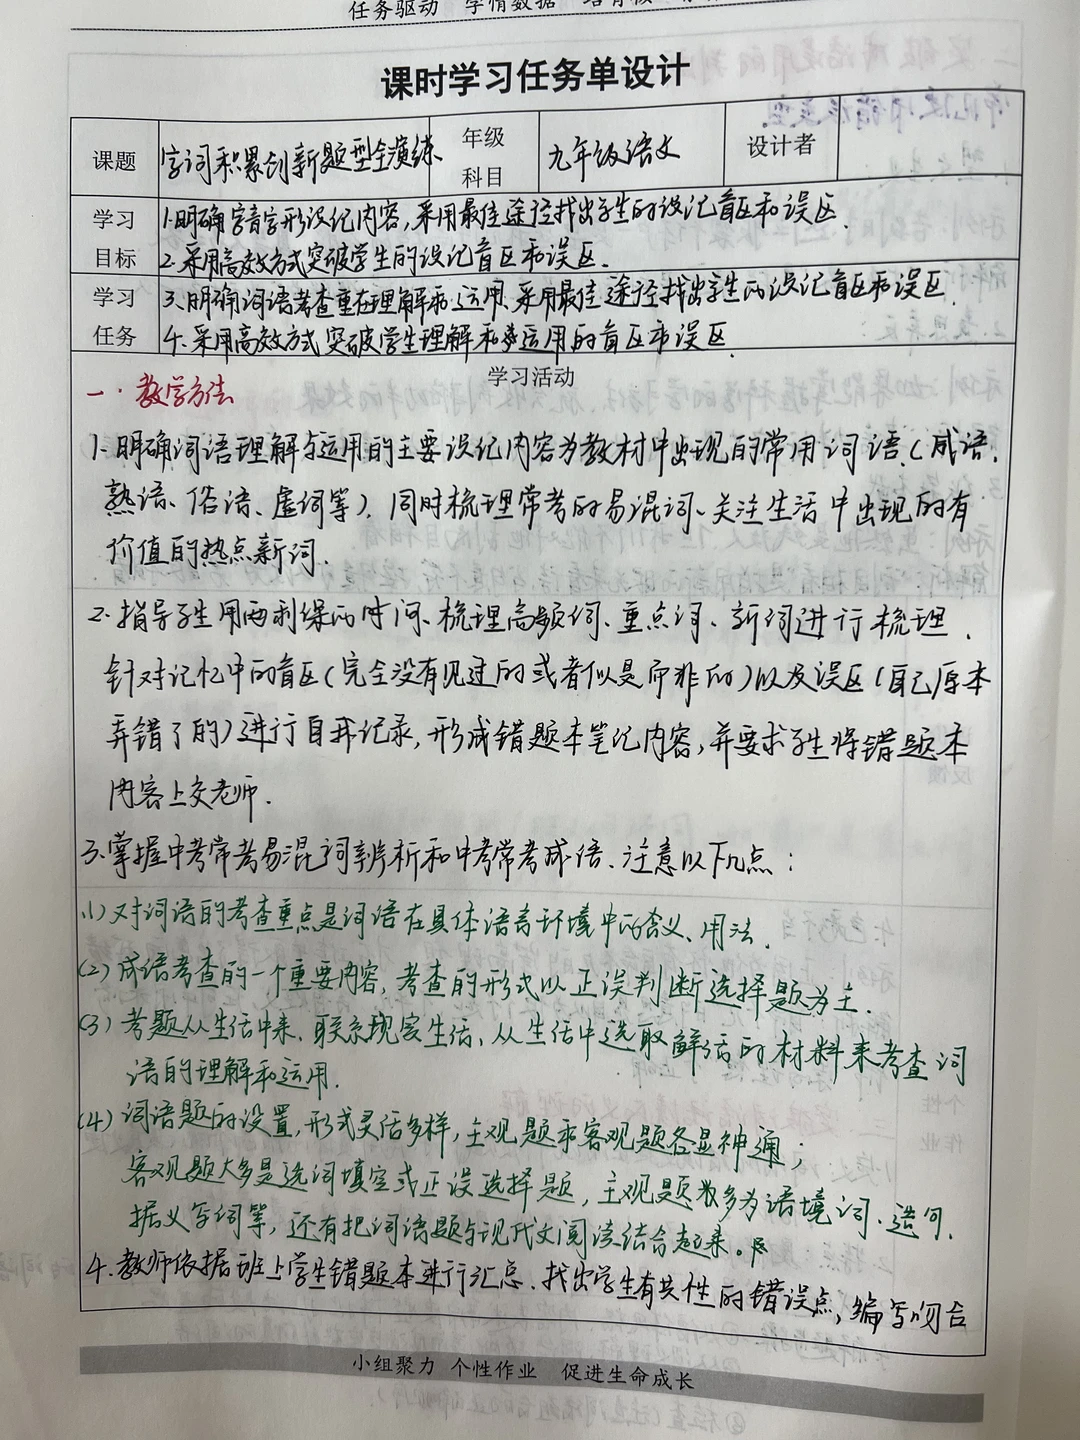 任务驱动 学情数据
课时学习任务单设计
课题 字词积累创新题型全演练 年级 科目 九年级语文 设计者
学习目标 1.明确字音字形识记内容,采用最佳途径找出学生的识记盲区和误区.
2.采用高效方式突破学生的识记盲区和误区.
学习任务 3.明确词语考查重在理解和运用,采用最佳途径找出学生的识记盲区和误区.
4.采用高效方式突破学生理解和运用的盲区和误区.
学习活动
一.教学方法
1.明确词语理解与运用的主要识记内容为教材中出现的常用词语.(成语、
熟语、俗语、虚词等).同时梳理常考的易混词、关注生活中出现的有
价值的热点新词.
2.指导学生用两到课的时间、梳理高频词、重点词、新词进行梳理.
针对记忆中的盲区(完全没有见过的或者似是而非的)以及误区(自己原本
弄错了的)进行自我记录,形成错题本笔记内容,并要求学生将错题本
内容上交老师.
3.掌握中考常考易混词辨析和中考常考成语、注意以下几点:
(1)对词语的考查重点是词语在具体语言环境中的含义、用法.
(2)成语考查的一个重要内容,考查的形式以正误判断选择题为主.
(3)考题从生活中来、联系现实生活、从生活中选取鲜活的材料来考查词
语的理解和运用.
(4)词语题的设置,形式灵活多样,主观题和客观题各显神通;
客观题大多是选词填空或正误选择题,主观题大多为语境词、造句.
据义写词等,还有把词语题与现代文阅读结合起来。
4.教师依据班上学生错题本进行汇总.找出学生有共性的错误点,编写吻合
小组聚力 个性作业 促进生命成长